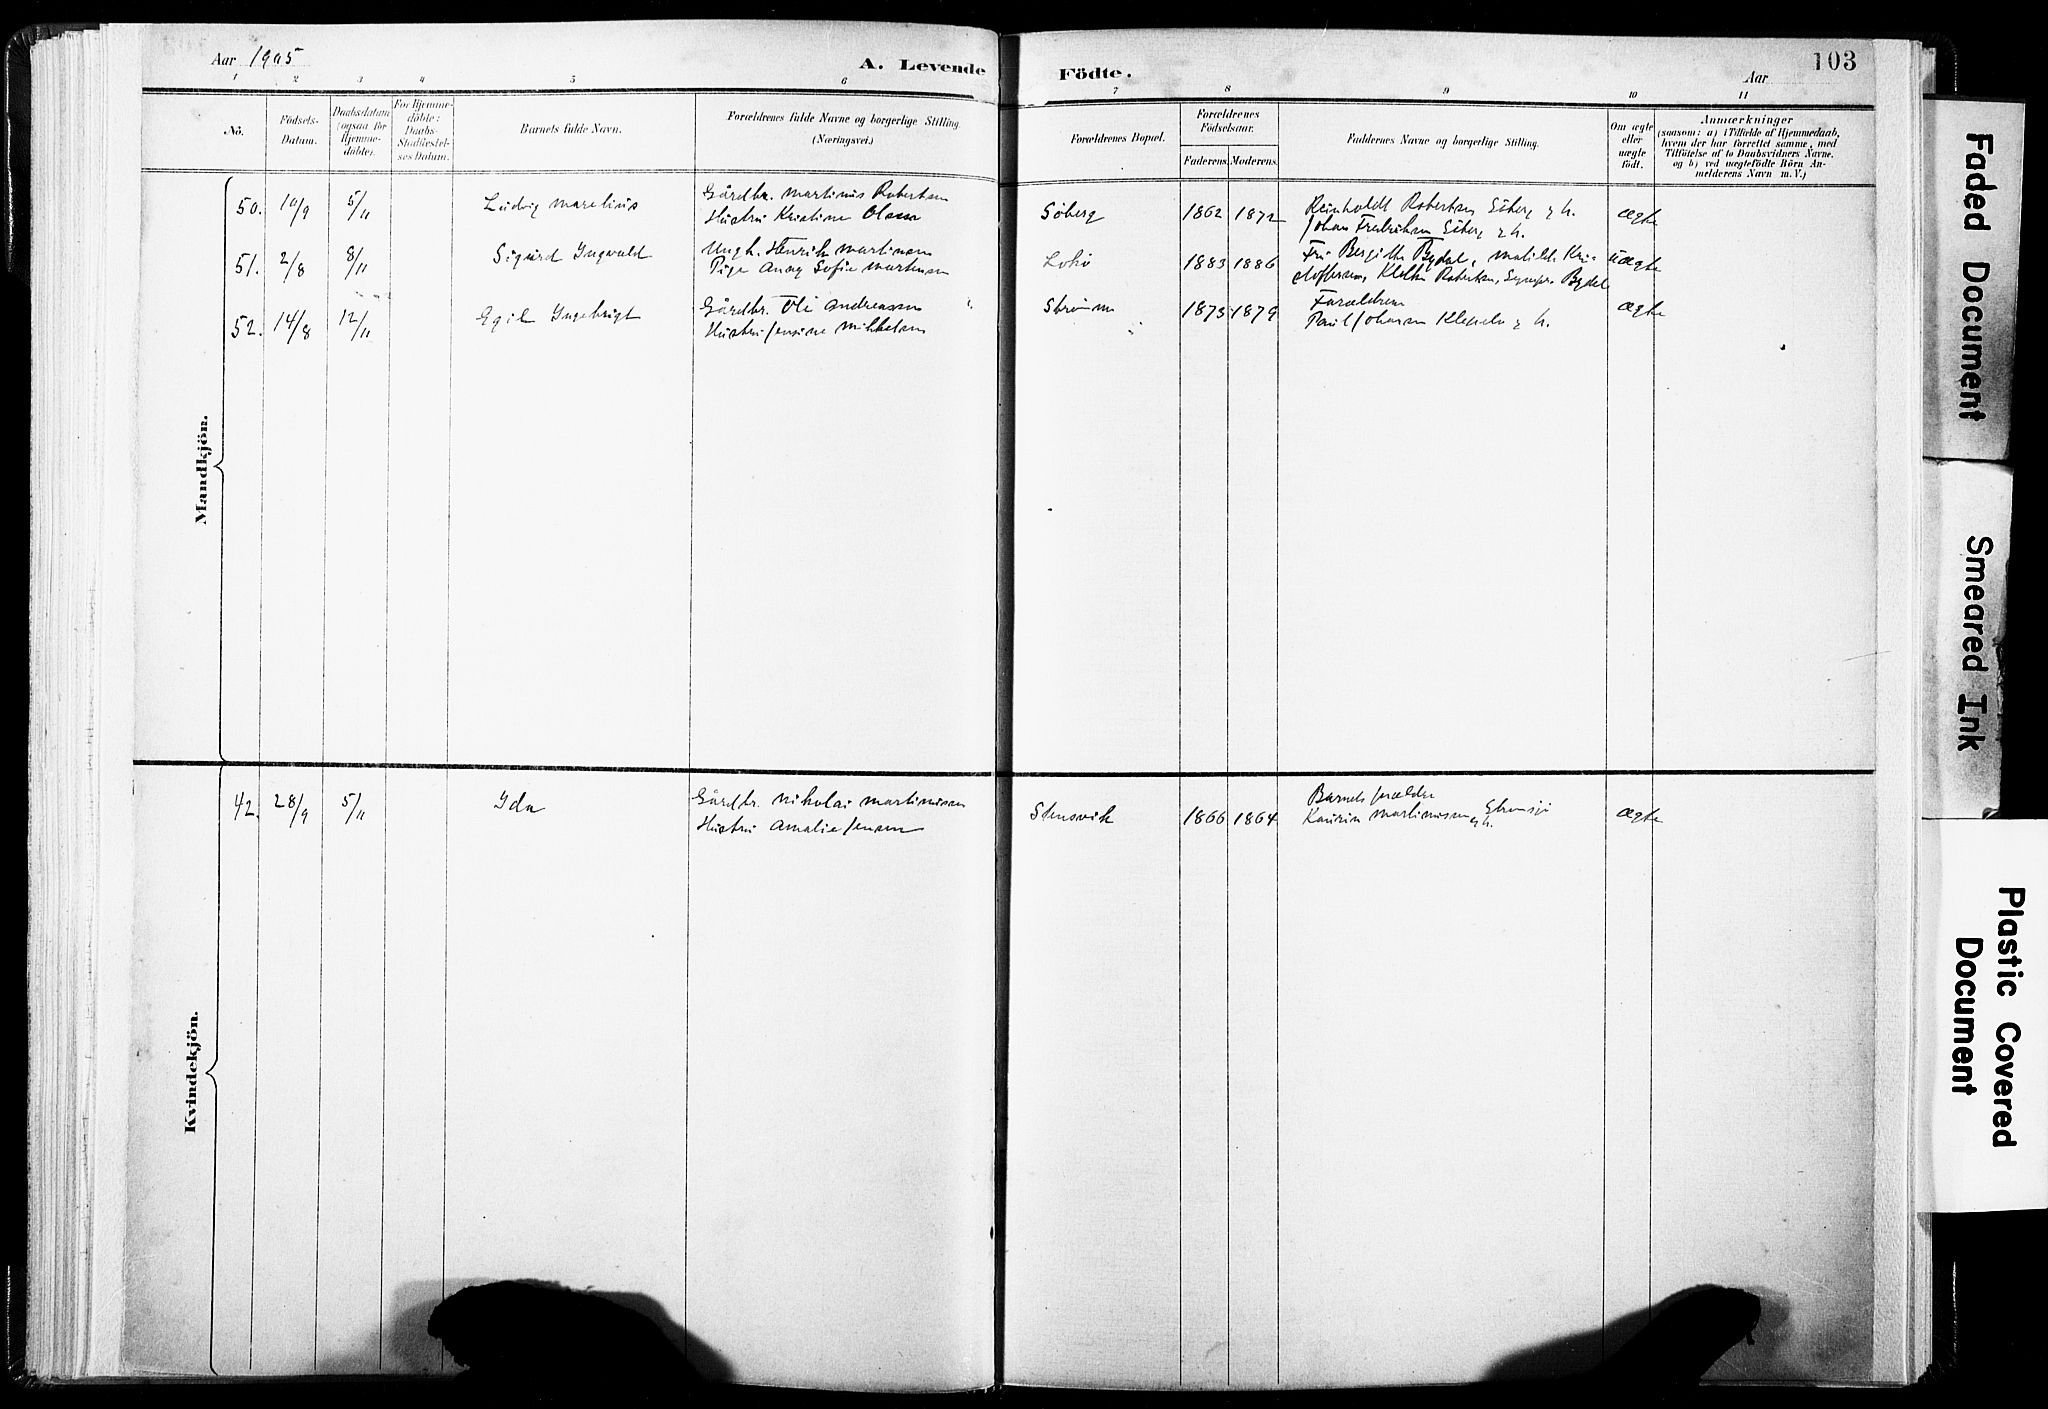 Aar 1905
A. Levende Födte.
Aar
103
1 2 3 4 5 6 7 8 9 10 11
No.
Födsels-
Datum.
Daabsdatum
(ogsaa for
Hjemme-
döbte).
For Hjemme-
döbte:
Daabs-
Stadfæstel-
ses Datum.
Barnets fulde Navn.
Forældrenes fulde Navne og borgerlige Stilling
(Næringsvei.)
Forældrenes Bopæl.
Forældrenes
Födselsaar.
Faderens. Moderens.
Faddernes Navne og borgerlige Stilling.
Om ægte
eller
uægte
födt.
Anmærkninger
(saasom: a) i Tilfælde af Hjemmedaab,
hvem der har forrettet samme, med
Tilföielse af to Daabsvidners Navne,
og b) ved uægtefödte Börn An-
melderens Navn m. V.)
Mandkjön.
50. 10/9 5/11 Ludvig Marelius
Gårdbr. Martinus Robertsen
Hustru Kristine Olsen
Söberg 1862 1872
Reinholdt Robertsen Söberg & h.
Johan Fredriksen Söberg & h.
ægte
51. 2/8 8/11 Sigurd Ingvald
Ungk. Henrik Martinsen
Pige Anny Sofie Martensen
1883 1886
Fru Bergithe Bydal, Matilde Kri-
stoffersen, Robertsen, Bydal
uægte
52. 14/8 12/11 Egil Ingebrigt
Gårdbr. Ole Andreassen
Hustru Jensine Mikkelsen
Strömm 1873 1879
Forældrene
Paul Johansen & h.
ægte
Kvindekjön.
42. 28/9 5/11 Ida
Gårdbr. Nikolai Martinussen
Hustru Amalie Jensen
Stensvik 1866 1864
Barnets forældre
Martinussen & h.
ægte
Faded Document
Smeared Ink
Plastic Covered
Document